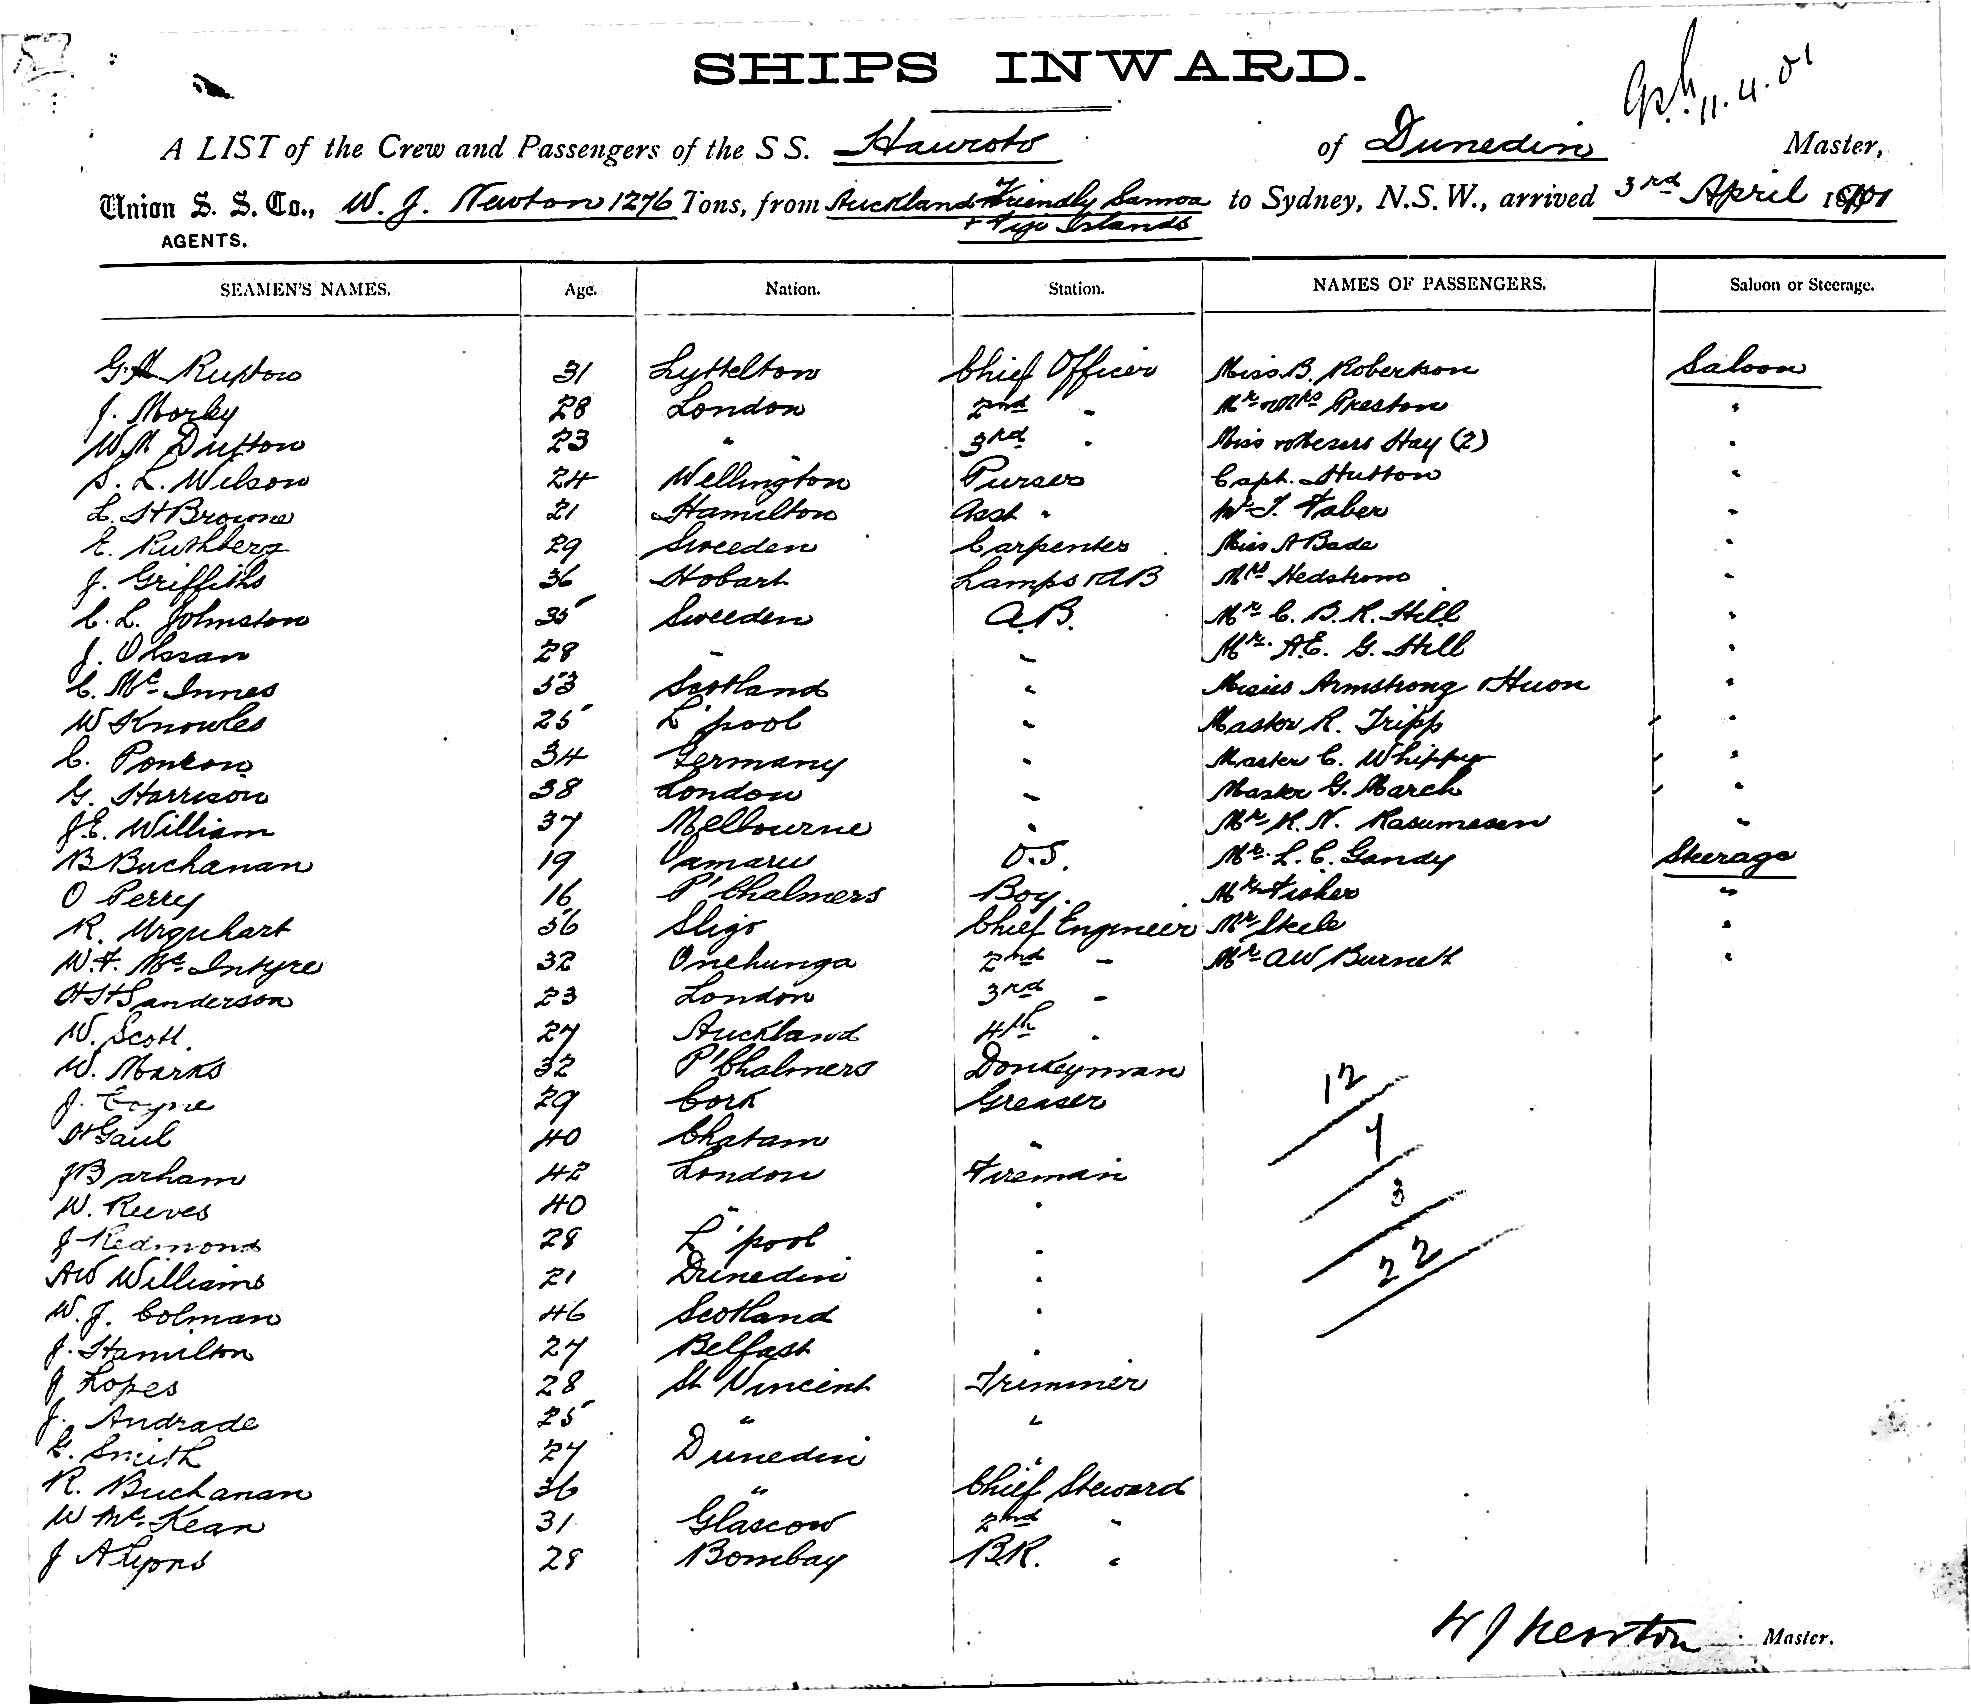 SHIPS INWARD.
11.4.01
A LIST of the Crew and Passengers of the SS. Hauroto of Dunedin Master,
Union S. S. Co., W. J. Newton 1276 Tons, from Auckland Friendly Samoa to Sydney, N.S.W., arrived 3rd April 1901
+ Fiji Islands
AGENTS.
SEAMEN'S NAMES. Age. Nation. Station. NAMES OF PASSENGERS. Saloon or Steerage.
31 Lyttelton Chief Officer Miss B. Robertson Saloon
J. Morley 28 London 2nd " Mr & Mrs Preston "
WH Dutton 23 " 3rd " Miss Hay (2) "
S. L. Wilson 24 Wellington Purser Capt. Hutton "
L. St Browne 21 Hamilton Asst " W. J. Faber "
E. Ruthberg 29 Sweeden Carpenter Miss A Bade "
J. Griffiths 36 Hobart Lamps & AB Mrs Hedstrom "
C. L. Johnston 35 Sweeden A.B. Mr C. B. R. Hill "
J. Olssan 28 " " Mr. A.E. G. Hill "
C. Mc Innes 53 Scotland " Armstrong & Huon "
W Knowles 25 L'pool " Master R. Tripp "
C. 34 Germany " Master C. Whippy "
G. Harrison 38 London " Master G. March "
J.E. William 37 Melbourne " Mr H. N. Rasumesen "
B Buchanan 19 Oamaru O.S. Mr. L. C. Gandy Steerage
O Perry 16 Pt Chalmers Boy. Mr Fisher "
R. Urquhart 56 Sligo Chief Engineer Mr Steele "
W. F. Mc Intyre 32 Onehunga 2nd " Mr AW Burnett "
H Sanderson 23 London 3rd "
W. Scott. 27 Auckland 4th "
W. Marks 32 Pt Chalmers Donkeyman
J. Coyne 29 Cork Greaser
H Gaul 40 Chatam "
J Barham 42 London Fireman
W. Reeves 40 " "
J Redmond 28 L'pool "
AW Williams 21 Dunedin "
W. J. Colman 46 Scotland "
J. Hamilton 27 Belfast "
J Lopes 28 St Vincent Trimmer
J. Andrade 25 " "
G. Smith 27 Dunedin "
R. Buchanan 36 " Chief Steward
W Mc Kean 31 Glascow 2nd "
J A Lyons 28 Bombay BR. "
12
7
3
22
W J Newton Master.